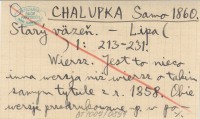 CHALUPKA Samo 1860.
Starý väzeň. – Lipa (
) 1: 213-231.
Wiersz. Jest to nieco
inna wersja niż wiersz o takim
samym tytule z r. 1858. Obie
wersje przedrukowane p. w